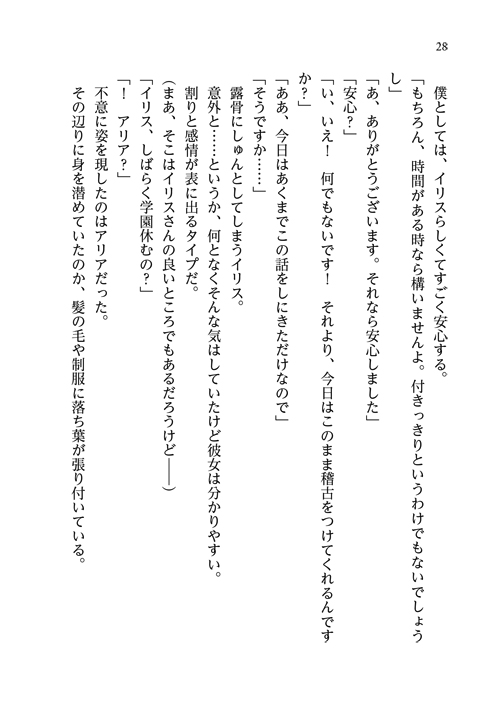 28
　僕としては、イリスらしくてすごく安心する。
「もちろん、時間がある時なら構いませんよ。付きっきりというわけでもないでしょう
し」
「あ、ありがとうございます。それなら安心しました」
「安心？」
「い、いえ！　何でもないです！　それより、今日はこのまま稽古をつけてくれるんです
か？」
「ああ、今日はあくまでこの話をしにきただけなので」
「そうですか……」
　露骨にしゅんとしてしまうイリス。
　意外と……というか、何となくそんな気はしていたけど彼女は分かりやすい。
　割りと感情が表に出るタイプだ。
（まあ、そこはイリスさんの良いところでもあるだろうけど――）
「イリス、しばらく学園休むの？」
「！　アリア？」
　不意に姿を現したのはアリアだった。
　その辺りに身を潜めていたのか、髪の毛や制服に落ち葉が張り付いている。